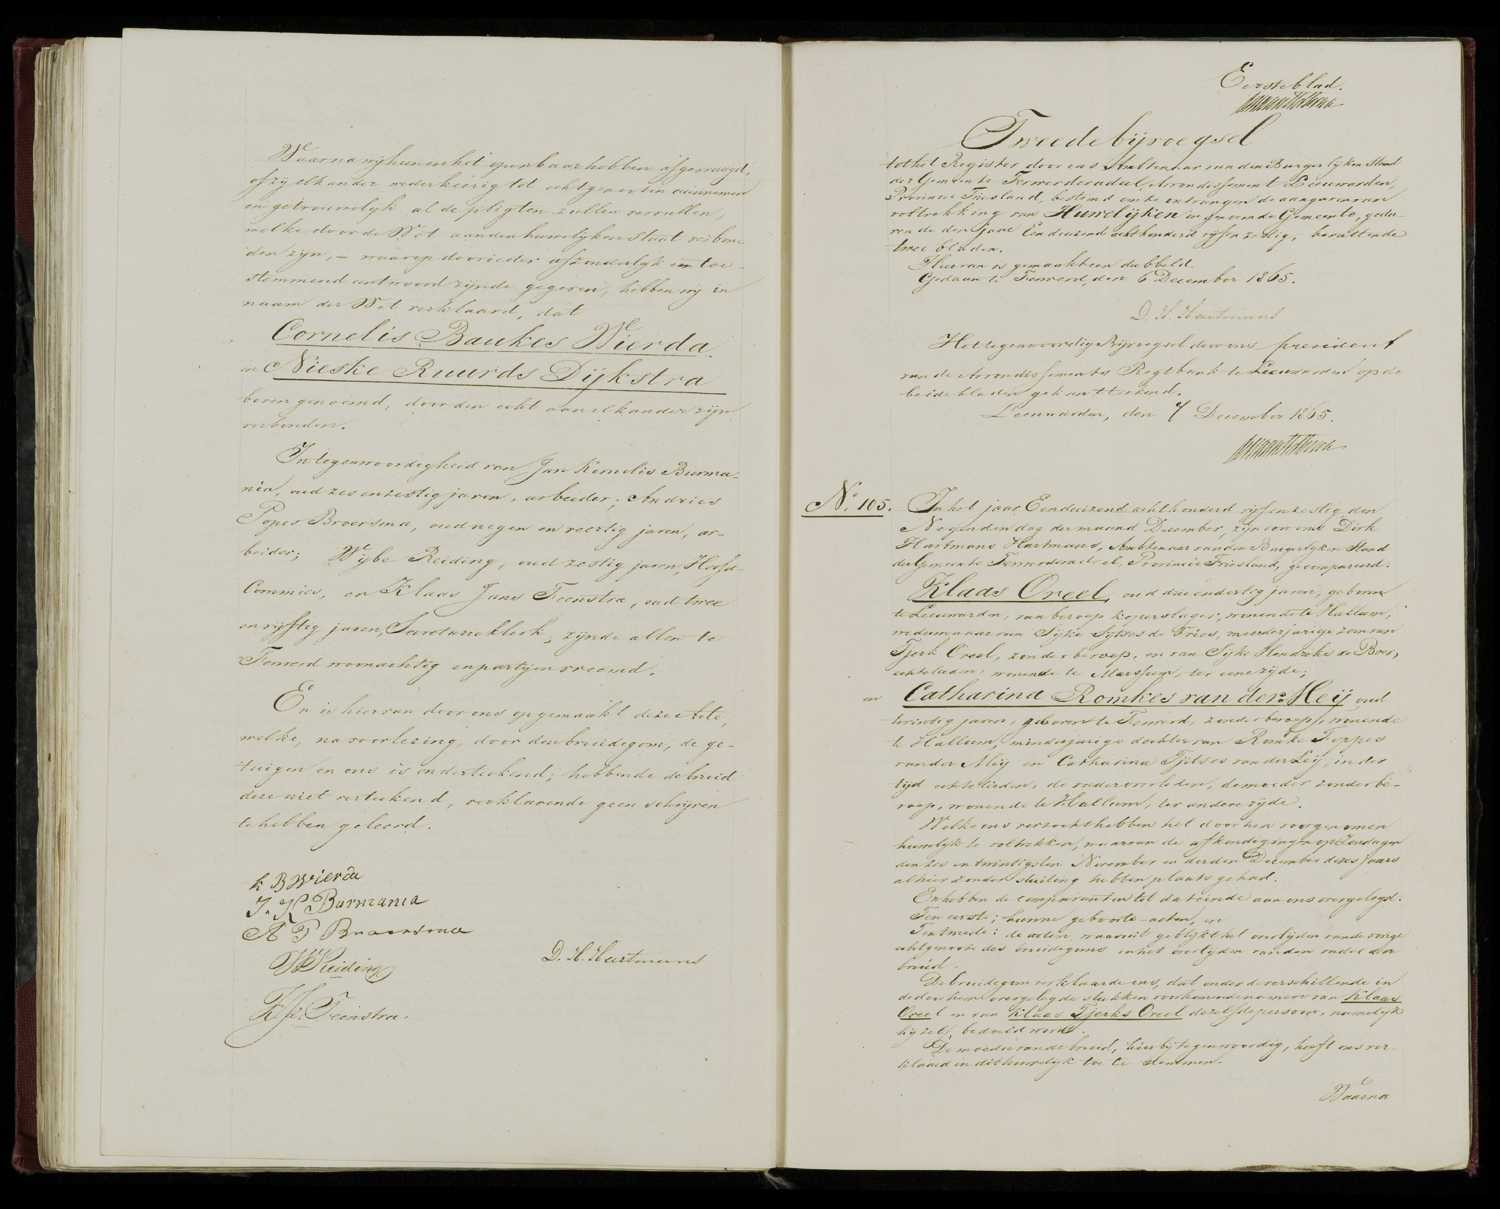 Waarna wij hun in het openbaar hebben afgevraagd,
of zij elkander wederkeerig tot echtgenooten aannemen
en getrouwelijk al de pligten zullen vervullen,
welke door de Wet aan den huwelijken staat verbon-
den zijn, – waarop door ieder afzonderlijk een toe-
stemmend antwoord zijnde gegeven, hebben wij in
naam der Wet verklaard, dat
Cornelis Baukes Wierda
en Nieske Ruurds Dijkstra
boven genoemd, door den echt aan elkander zijn
verbonden.
In tegenwoordigheid van Jan Kornelis Burma-
nia, oud zes en zestig jaren, arbeider; Andries
Popes Broersma, oud negen en veertig jaren, ar-
beider; Wybe Reiding, oud zestig jaren, Hoofd-
Commies, en Klaas Jans Feenstra, oud twee
en vijftig jaren, Secretarieklerk, zijnde allen te
Ferwerd woonachtig en partijen vreemd.
En is hiervan door ons opgemaakt deze Acte,
welke, na voorlezing, door den bruidegom, de ge-
tuigen en ons is onderteekend; hebbende de bruid
deze niet verteekend, verklarende geen schrijven
te hebben geleerd.
K B Wierda
J. K Burmania
A P Broersma
W Reiding
D. H. Hartmans
K Js. Feenstra.
Eerste blad.
Tweede bijvoegsel
tot het Register, door ons Ambtenaar van den Burgerlijken Stand
der Gemeente Ferwerderadeel, Arrondissement Leeuwarden,
Provincie Friesland, bestemd om te ontvangen de acten van
voltrekking van Huwelijken in gemelde Gemeente, gedu-
rende den jare Een duizend acht honderd vijf en zestig, bevattende
twee bladen.
Hiervan is gemaakt een dubbeld.
Gedaan te Ferwerd, den 6 December 1865.
D. H. Hartmans
Het tegenwoordig Bijvoegsel door ons president
van de Arrondissements Regtbank te Leeuwarden op de
beide bladen gekantteekend.
Leeuwarden, den 7 December 1865.
No. 105. In het jaar Een duizend acht honderd vijf en zestig den
Negenden dag der maand December, zijn voor ons Dirk
Hartmans Hartmans, Ambtenaar van den Burgerlijken Stand
der Gemeente Ferwerderadeel, Provincie Friesland, gecompareerd:
Klaas Oreel, oud drie en dertig jaren, geboren
te Leeuwarden, van beroep koperslager, wonende te Hallum,
weduwnaar van Sijke Sijtses de Vries, meerderjarige zoon van
Tjerk Oreel, zonder beroep, en van Sijke Hendriks de Boer,
echtelieden, wonende te Marssum, ter eene zijde;
en Catharina Romkes van der Meij oud
twintig jaren, geboren te Ferwerd, zonder beroep, wonende
te Hallum, minderjarige dochter van Romke Foppes
van der Meij en Catharina Tjitses van der Leij, in der
tijd echtelieden, de vader overleden, de moeder zonder be-
roep, wonende te Hallum, ter andere zijde.
Welke ons verzocht hebben het door hen voorgenomen
huwelijk te voltrekken, waarvan de afkondigingen op Zondagen
den zes en twintigsten November en derden December dezes jaars
alhier zonder stuiting hebben plaats gehad.
En hebben de comparanten tot dat einde aan ons overgelegd:
Ten eerste: hunne geboorte-acten, en
Ten tweede: de acten waaruit geblijkt het overlijden van de vorige
echtgenoote des bruidegoms en het overlijden van den vader der
bruid.
De bruidegom verklaarde ons, dat onder de verschillende in
de door hem overgelegde stukken voorkomende namen van Klaas
Oreel en van Klaas Tjerks Oreel dezelfde persoon, namelijk
hij zelf, bedoeld wordt.
De moeder van de bruid, hier bij tegenwoordig, heeft ons ver-
klaard in dit huwelijk toe te stemmen.
Waarna